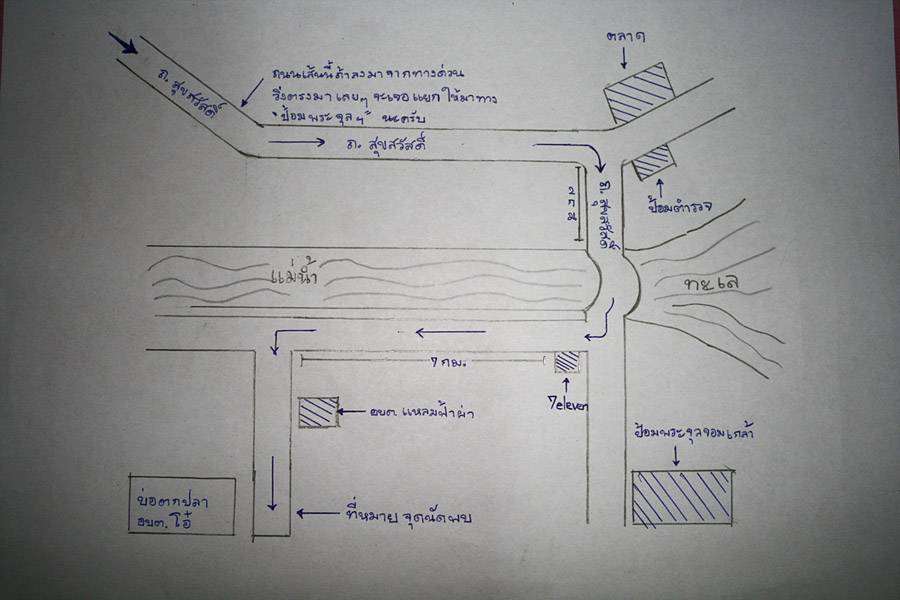 ตลาด
ถ. สุขสวัสดิ์
ถนนเส้นนี้ถ้าลงมาจากทางด่วน
วิ่งตรงมาเลยๆ จะเจอแยก ให้มาทาง
"ป้อมพระจุลฯ" นะครับ
ถ. สุขสวัสดิ์
ถ. สุขสวัสดิ์
ป้อมตำรวจ
แม่น้ำ
ทะเล
7 กม.
7eleven
อบต. แหลมฟ้าผ่า
ป้อมพระจุลจอมเกล้า
บ่อตกปลา
อบต. โอ๋
ที่หมาย จุดนัดพบ